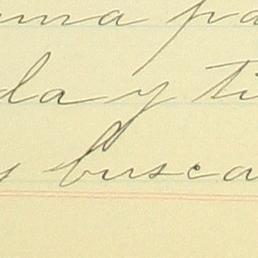 uma pa
da y ti
y busca